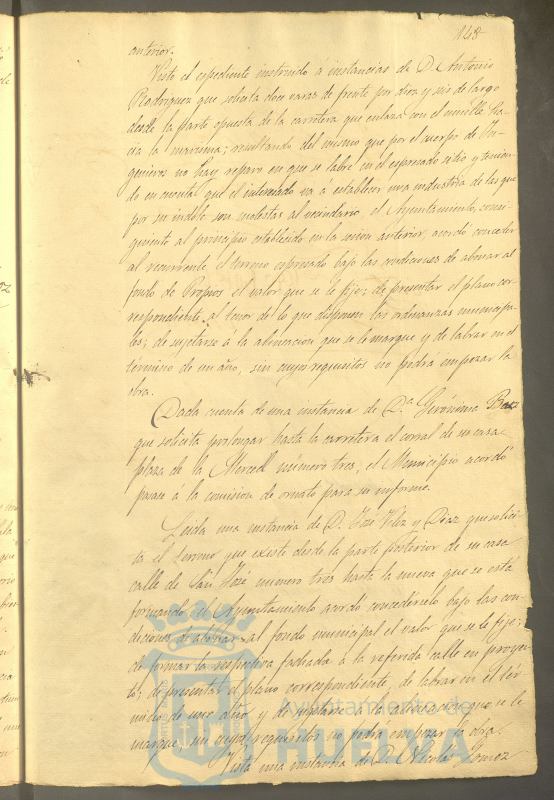 148
anterior.
Visto el espediente instruido á instancias de D. Antonio
Rodriguez que solicita doce varas de frente por diez y seis de largo
desde la parte opuesta de la carretera que enlaza con el muelle ha-
cia la marisma; resultando del mismo que por el cuerpo de In-
genieros no hay reparo en que se labre en el espresado sitio y tenien-
do en cuenta que el interesado va á establecer una industria de las que
por su indole son molestas al vecindario, el Ayuntamiento, consi-
guiente al principio establecido en la sesion anterior, acordó conceder
al recurrente el terreno espresado bajo las condiciones de abonar al
fondo de Propios el valor que se le fije; de presentar el plano cor-
respondiente, al tenor de lo que disponen las ordenanzas municipa-
les; de sujetarse á la alineacion que se le marque y de labrar en el
termino de un año, sin cuyos requisitos no podrá empezar la
obra.
Dada cuenta de una instancia de D.ª Gerónima
que solicita prolongar hasta la carretera el corral de su casa
plaza de la Merced número tres, el Municipio acordó
pasase á la comision de ornato para su informe.
Leida una instancia de D. José Velez y Diaz que solici-
ta el terreno que existe desde la parte posterior de su casa
calle de San José numero tres hasta la nueva que se está
formando, el Ayuntamiento acordó concedérselo bajo las con-
diciones de abonar al fondo municipal el valor que se le fije;
de formar la respectiva fachada á la referida calle en proyec-
to; de presentar el plano correspondiente, de labrar en el tér-
mino de un año y de sujetarse á la alineacion que se le
marque, sin cuyos requisitos no podrá empezar la obra.
Vista una instancia de D. Nicolas Gomez
Ayuntamiento de
HUELVA